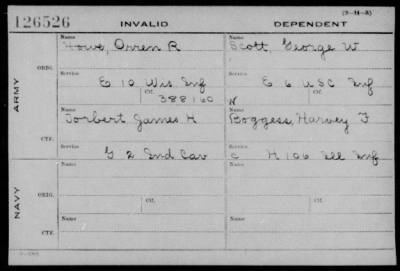 (3-14-3)
126526 INVALID DEPENDENT
Name Name
Howe, Orren R Scott, George W
ARMY
ORIG.
Service Service
E 10 Wis Inf E 6 U S C Inf
Ctf. Ctf.
388160
Name N Name
Torbert James H Boggess, Harvey F
CTF.
Service Service
G 2 Ind Cav C H 106 Ill Inf
NAVY
Name Name
ORIG.
Service Ctf. Service Ctf.
Name Name
CTF.
Service Service